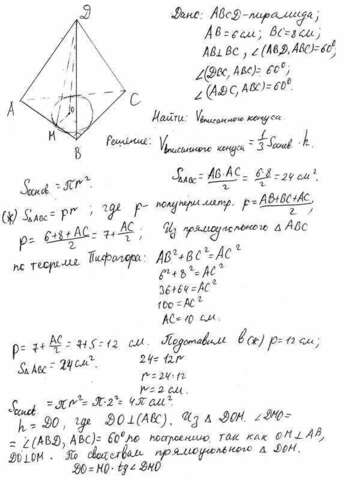 D
A
C
M
B
Дано: ABCD-пирамида;
AB=6см; BC=8см;
AB⊥BC, ∠(ABD,ABC)=60°;
∠(DBC, ABC)=60°;
∠(ADC, ABC)=60°.
Найти: Vвписанного конуса
Решение: Vвписанного конуса = 1/3 Sоснов · h.
Sоснов = πr².
S△ABC = AB·AC/2 = 6·8/2 = 24 см².
(*) S△ABC = pr; где p- полупериметр. p= AB+BC+AC/2;
p= 6+8+AC/2 = 7+ AC/2; Из прямоугольного △ABC
по теореме Пифагора: AB²+BC²=AC²
6²+8²=AC²
36+64=AC²
100=AC²
AC=10 см.
p=7+ AC/2 =7+5=12 см. Подставим в (*) p=12см;
S△ABC=24см². 24=12r
r=24:12
r=2см.
Sоснов =πr²=π·2²=4π см².
h=DO, где DO⊥(ABC). Из △DOM. ∠DMO=
=∠(ABD, ABC)=60° по построению, так как OM⊥AB,
DO⊥OM. По свойствам прямоугольного △DOM.
DO=MO·tg∠DMO